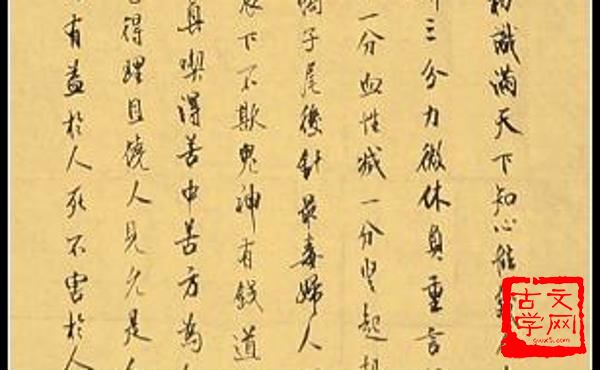 相識滿天下知心能幾人
三分力微休負重言
一分血性減一分豎起
子尾後針最毒婦人
下不欺鬼神有錢道
真喫得苦中苦方為
得理且饒人見允是
有益於人死不害於人
古文
学网
gwx5.com